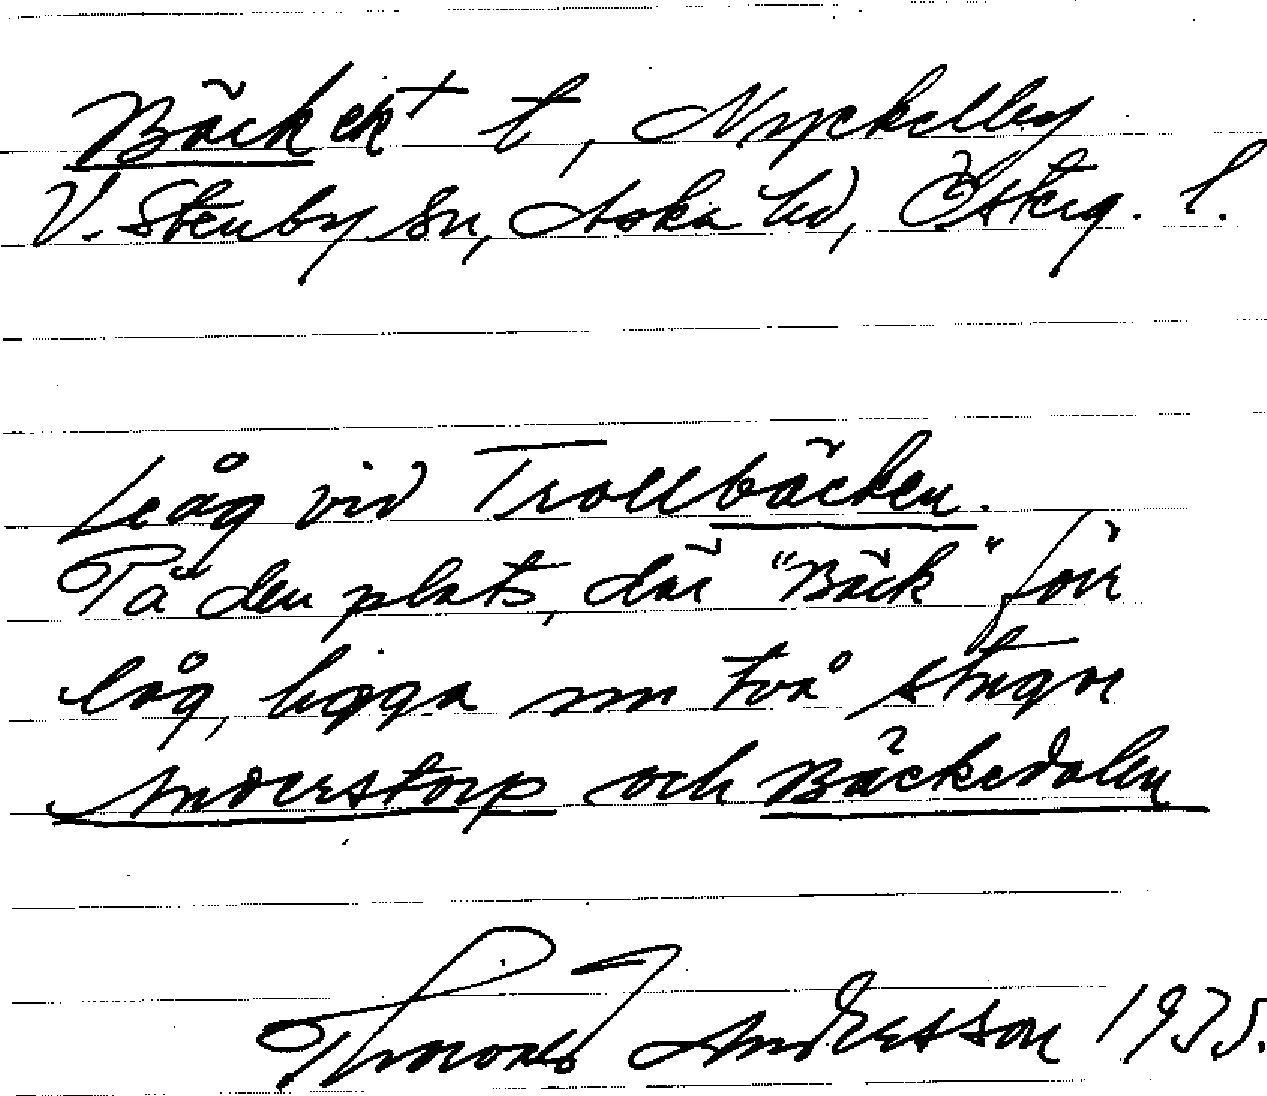 Bäck ek + t, Nyckelby
V. Stenby sn, Aska hd, Österg. l.
Låg vid Trollbäcken.
På den plats, där "Bäck" förr
låg, ligga nu två stugor
Anderstorp och Bäckedalen
Andersson 1935.